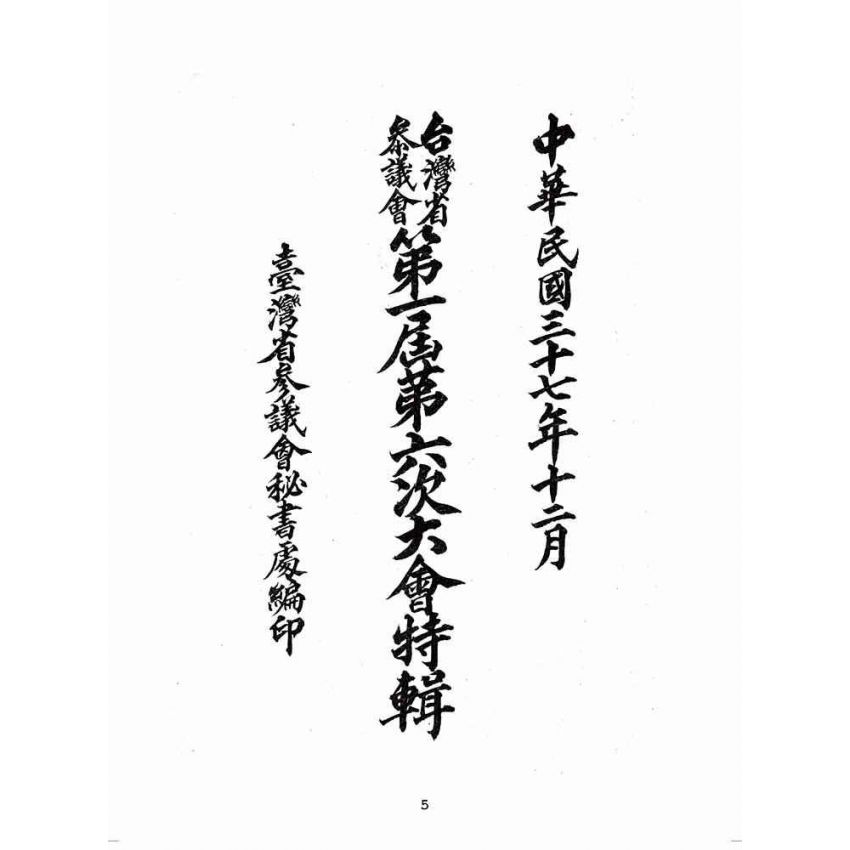 中華民國三十七年十二月
台灣省參議會第一屆第六次大會特輯
臺灣省參議會秘書處編印
5